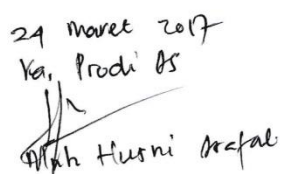 24 Maret 2017
Ka. Prodi AS
Muh Husni Arafat